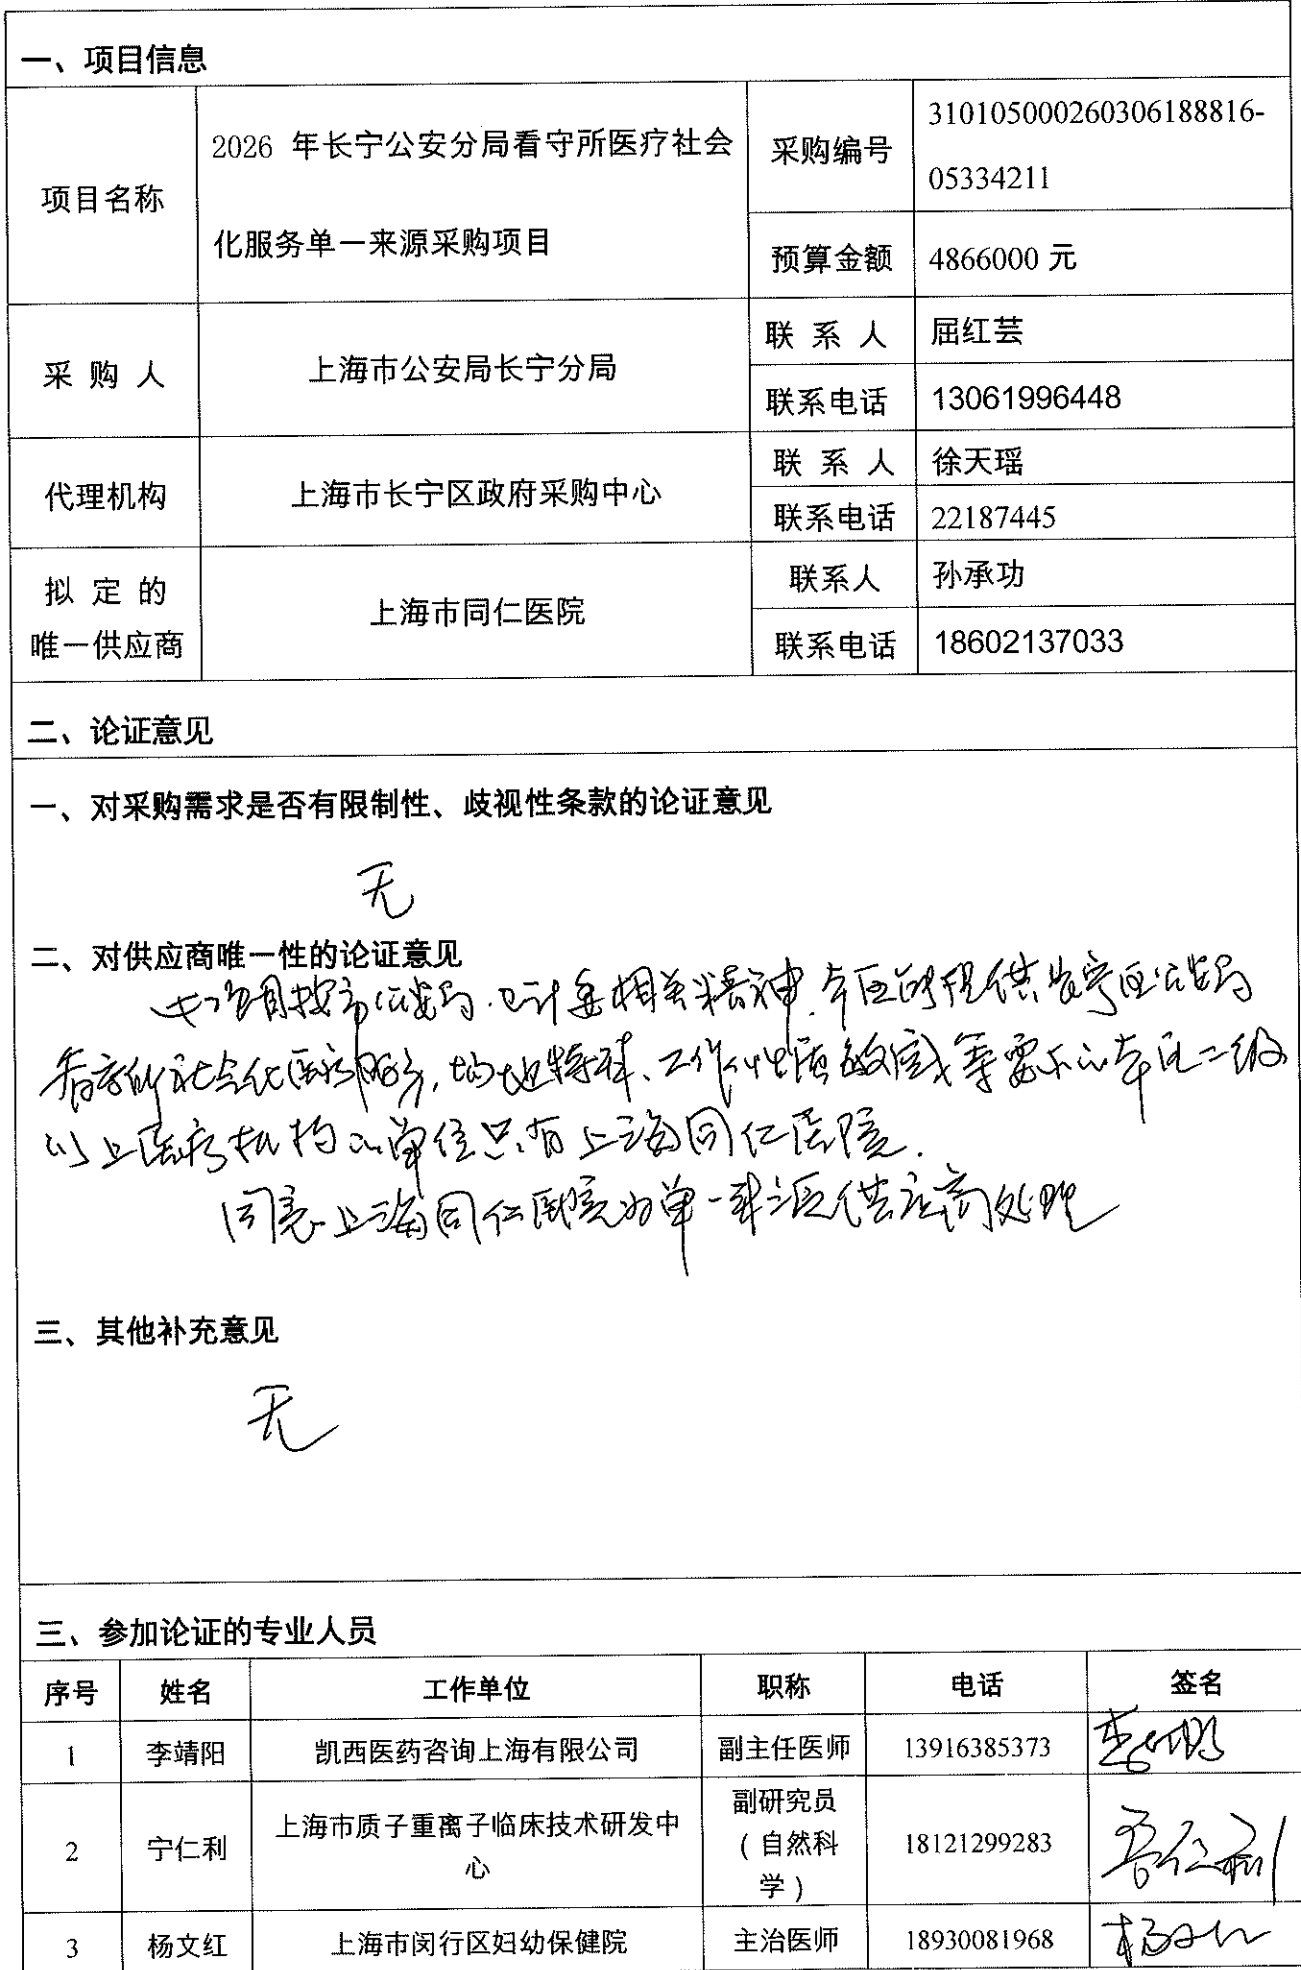 一、项目信息
项目名称
2026 年长宁公安分局看守所医疗社会
化服务单一来源采购项目
采购编号
310105000260306188816-
05334211
预算金额
4866000 元
采 购 人
上海市公安局长宁分局
联 系 人
屈红芸
联系电话
13061996448
代理机构
上海市长宁区政府采购中心
联 系 人
徐天瑶
联系电话
22187445
拟 定 的
唯一供应商
上海市同仁医院
联系人
孙承功
联系电话
18602137033
二、论证意见
一、对采购需求是否有限制性、歧视性条款的论证意见
无
二、对供应商唯一性的论证意见
项目按市公安局、卫计委相关精神,本区能提供长宁区公安局
看守所社会化医疗服务,场地特殊、工作性质敏感等要求的本区二级
以上医疗机构的单位只有上海同仁医院.
同意上海同仁医院为单一来源供应商处理
三、其他补充意见
无
三、参加论证的专业人员
序号 姓名 工作单位 职称 电话 签名
1 李靖阳 凯西医药咨询上海有限公司 副主任医师 13916385373
2 宁仁利 上海市质子重离子临床技术研发中
心
副研究员
(自然科
学)
18121299283 宁仁利
3 杨文红 上海市闵行区妇幼保健院 主治医师 18930081968 杨文红